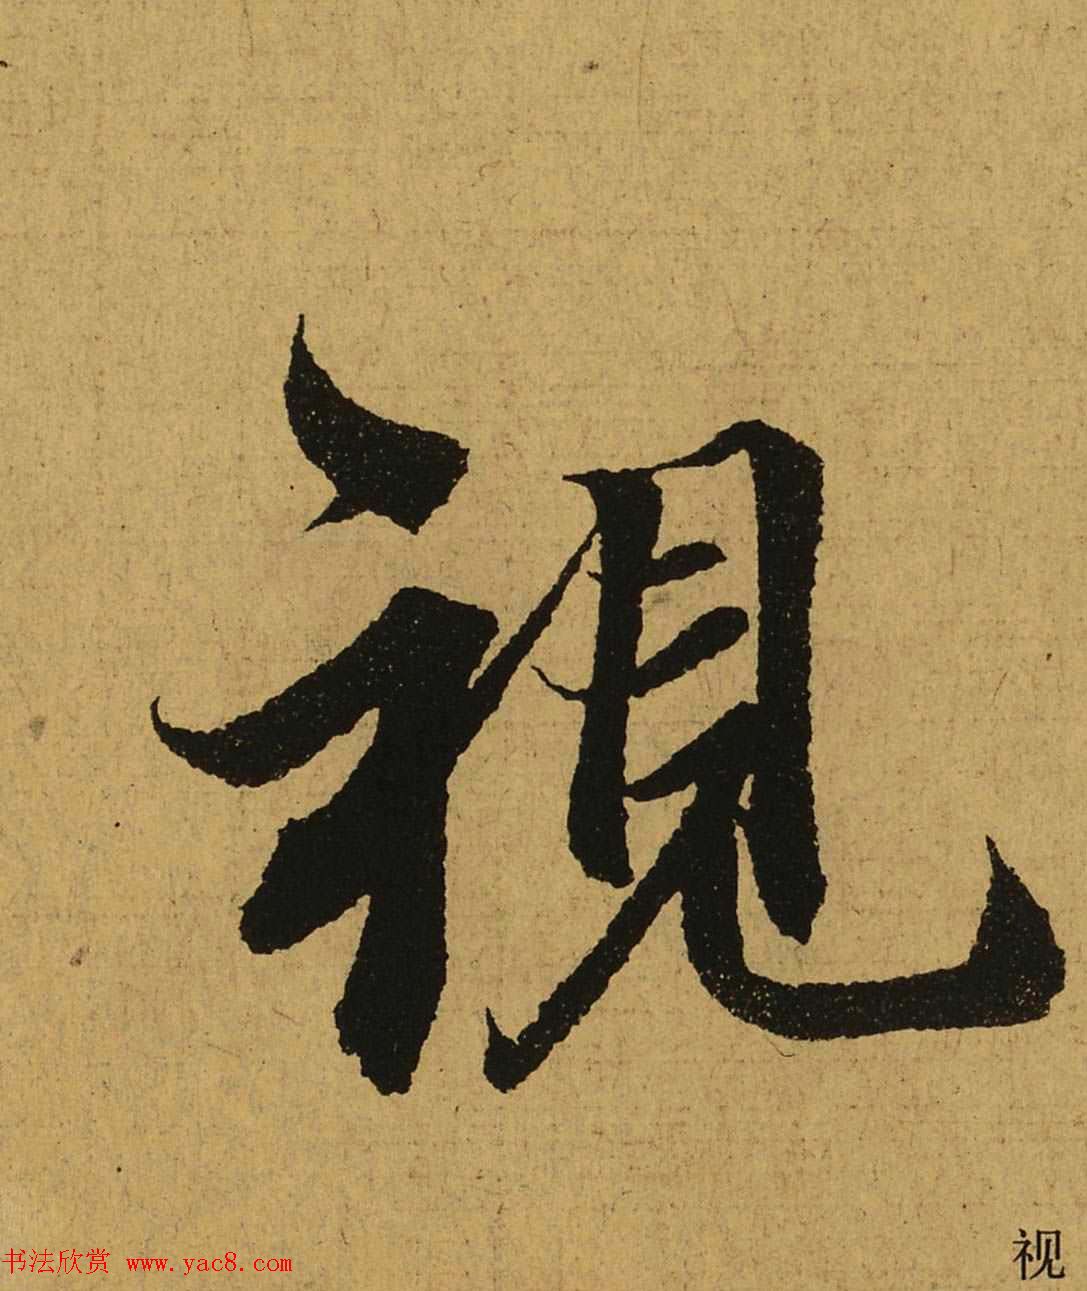 視
书法欣赏 www.yac8.com
视